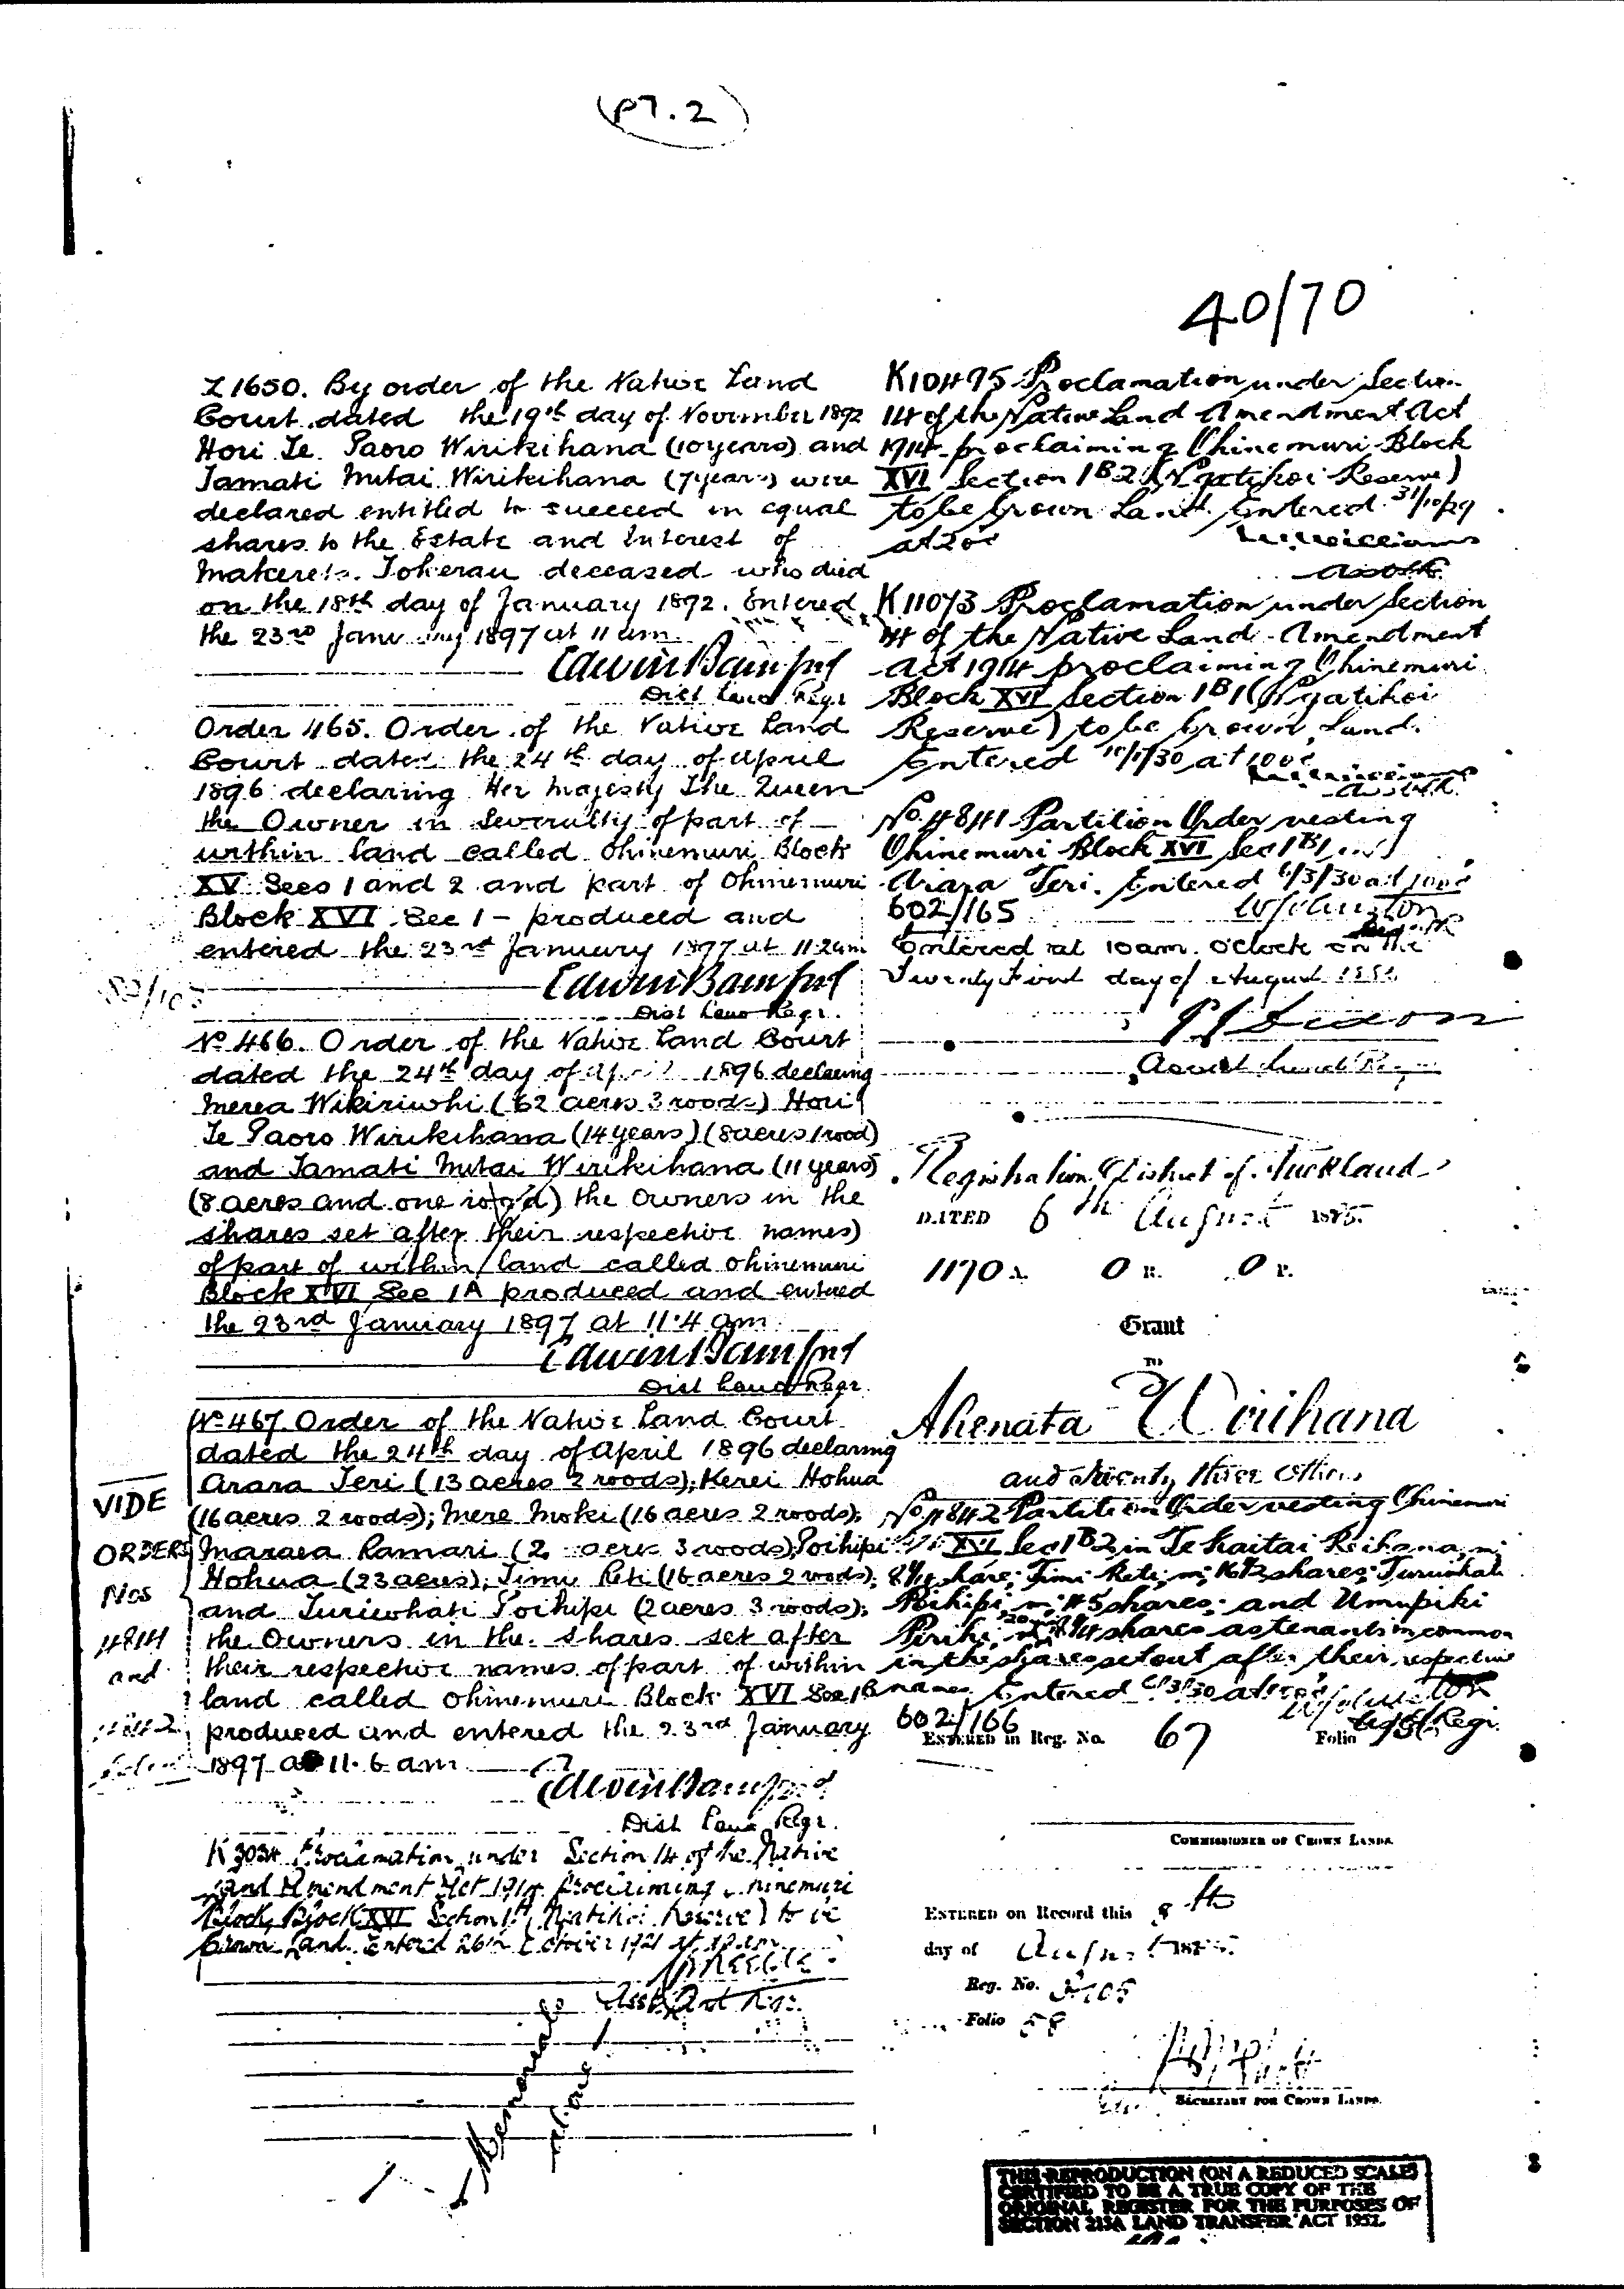 (PT. 2)
40/70
Z 1650. By order of the Native Land
Court dated the 19th day of November 1892
Hori Te Paoro Wirikihana (10 years) and
Tamati Mutai Wirikihana (7 years) were
declared entitled to succeed in equal
shares to the Estate and Interest of
Tokerau deceased who died
on the 18th day of January 1892. Entered
the 23rd January 1897 at 11 am.
Edwin Bamford
Dist Land Regr
Order 465. Order of the Native Land
Court dated the 24th day of April
1896 declaring Her Majesty The Queen
the Owner in Severalty of part of
within land called Ohinemuri Block
XV Secs 1 and 2 and part of Ohinemuri
Block XVI Sec 1 - produced and
entered the 23rd January 1897 at 11.2 am
Edwin Bamford
Dist Land Regr.
No 466. Order of the Native Land Court
dated the 24th day of April 1896 declaring
Merea Wikiriwhi (62 acres 3 roods) Hori
Te Paoro Wirikihana (14 years) (8 acres 1 rood)
and Tamati Mutai Wirikihana (11 years)
(8 acres and one rood) the Owners in the
shares set after their respective names)
of part of within land called Ohinemuri
Block XVI Sec 1A produced and entered
the 23rd January 1897 at 11.4 am
Edwin Bamford
Dist Land Regr.
No 467. Order of the Native Land Court
dated the 24th day of April 1896 declaring
Arara Teri (13 acres 2 roods); Kerei Hohua
(16 acres 2 roods); Mere Moki (16 acres 2 roods);
Maraea Ramari (2 acres 3 roods); Poihipi
Hohua (23 acres); Timi Reti (16 acres 2 roods);
and Turiwhati Poihipi (2 acres 3 roods);
the Owners in the shares set after
their respective names of part of within
land called Ohinemuri Block XVI Sec 1B
produced and entered the 23rd January
1897 at 11.6 am
Edwin Bamford
Dist Land Regr.
VIDE
ORDERS
Nos
4841
and
4842
K 3034 Proclamation under Section 14 of the Native
Land Amendment Act 1914 proclaiming Ohinemuri
Block Block XVI Section 1A (Ngatikoi Reserve) to be
Crown Land. Entered 26th October 1921 at 10 am
Asst
Memorials
K10495 Proclamation under Section
14 of the Native Land Amendment Act
1914 proclaiming Ohinemuri Block
XVI Section 1B2 (Ngatikoi Reserve)
to be Crown Land. Entered 31/10/29
at
Williams
K 11073 Proclamation under Section
14 of the Native Land Amendment
Act 1914 proclaiming Ohinemuri
Block XVI Section 1B1 (Ngatikoi
Reserve) to be Crown Land.
Entered
No. 4841 Partition Order vesting
Ohinemuri Block XVI Sec 1B1 in
Arara Teri. Entered 6/3/30 at 10 oc
602/165
W Johnston
Entered at 10 am. o'clock on the
Twenty First day of August
Assist Land Regr
Registration District of Auckland
DATED 6th August 1885.
1170 A. 0 R. 0 P.
Grant
TO
Ahenata Wirihana
and Twenty three others
No 4842 Partition Order vesting Ohinemuri
XVI Sec 1B2 in Te Kaitai Reihana,
share; Timi Reti, in 16 1/2 shares; Turiwhati
Poihipi, shares; and Umupiki
Piriki, shares as tenants in common
in the shares set out after their respective
names. Entered 6/3/30 at
W Johnston
602/166
ENTERED in Reg. No. 67 Folio
COMMISSIONER OF CROWN LANDS.
ENTERED on Record this 8th
day of August 188
Reg. No.
Folio 58
SECRETARY FOR CROWN LANDS.
THIS REPRODUCTION (ON A REDUCED SCALE)
CERTIFIED TO BE A TRUE COPY OF THE
ORIGINAL REGISTER FOR THE PURPOSES OF
SECTION 215A LAND TRANSFER ACT 1952.